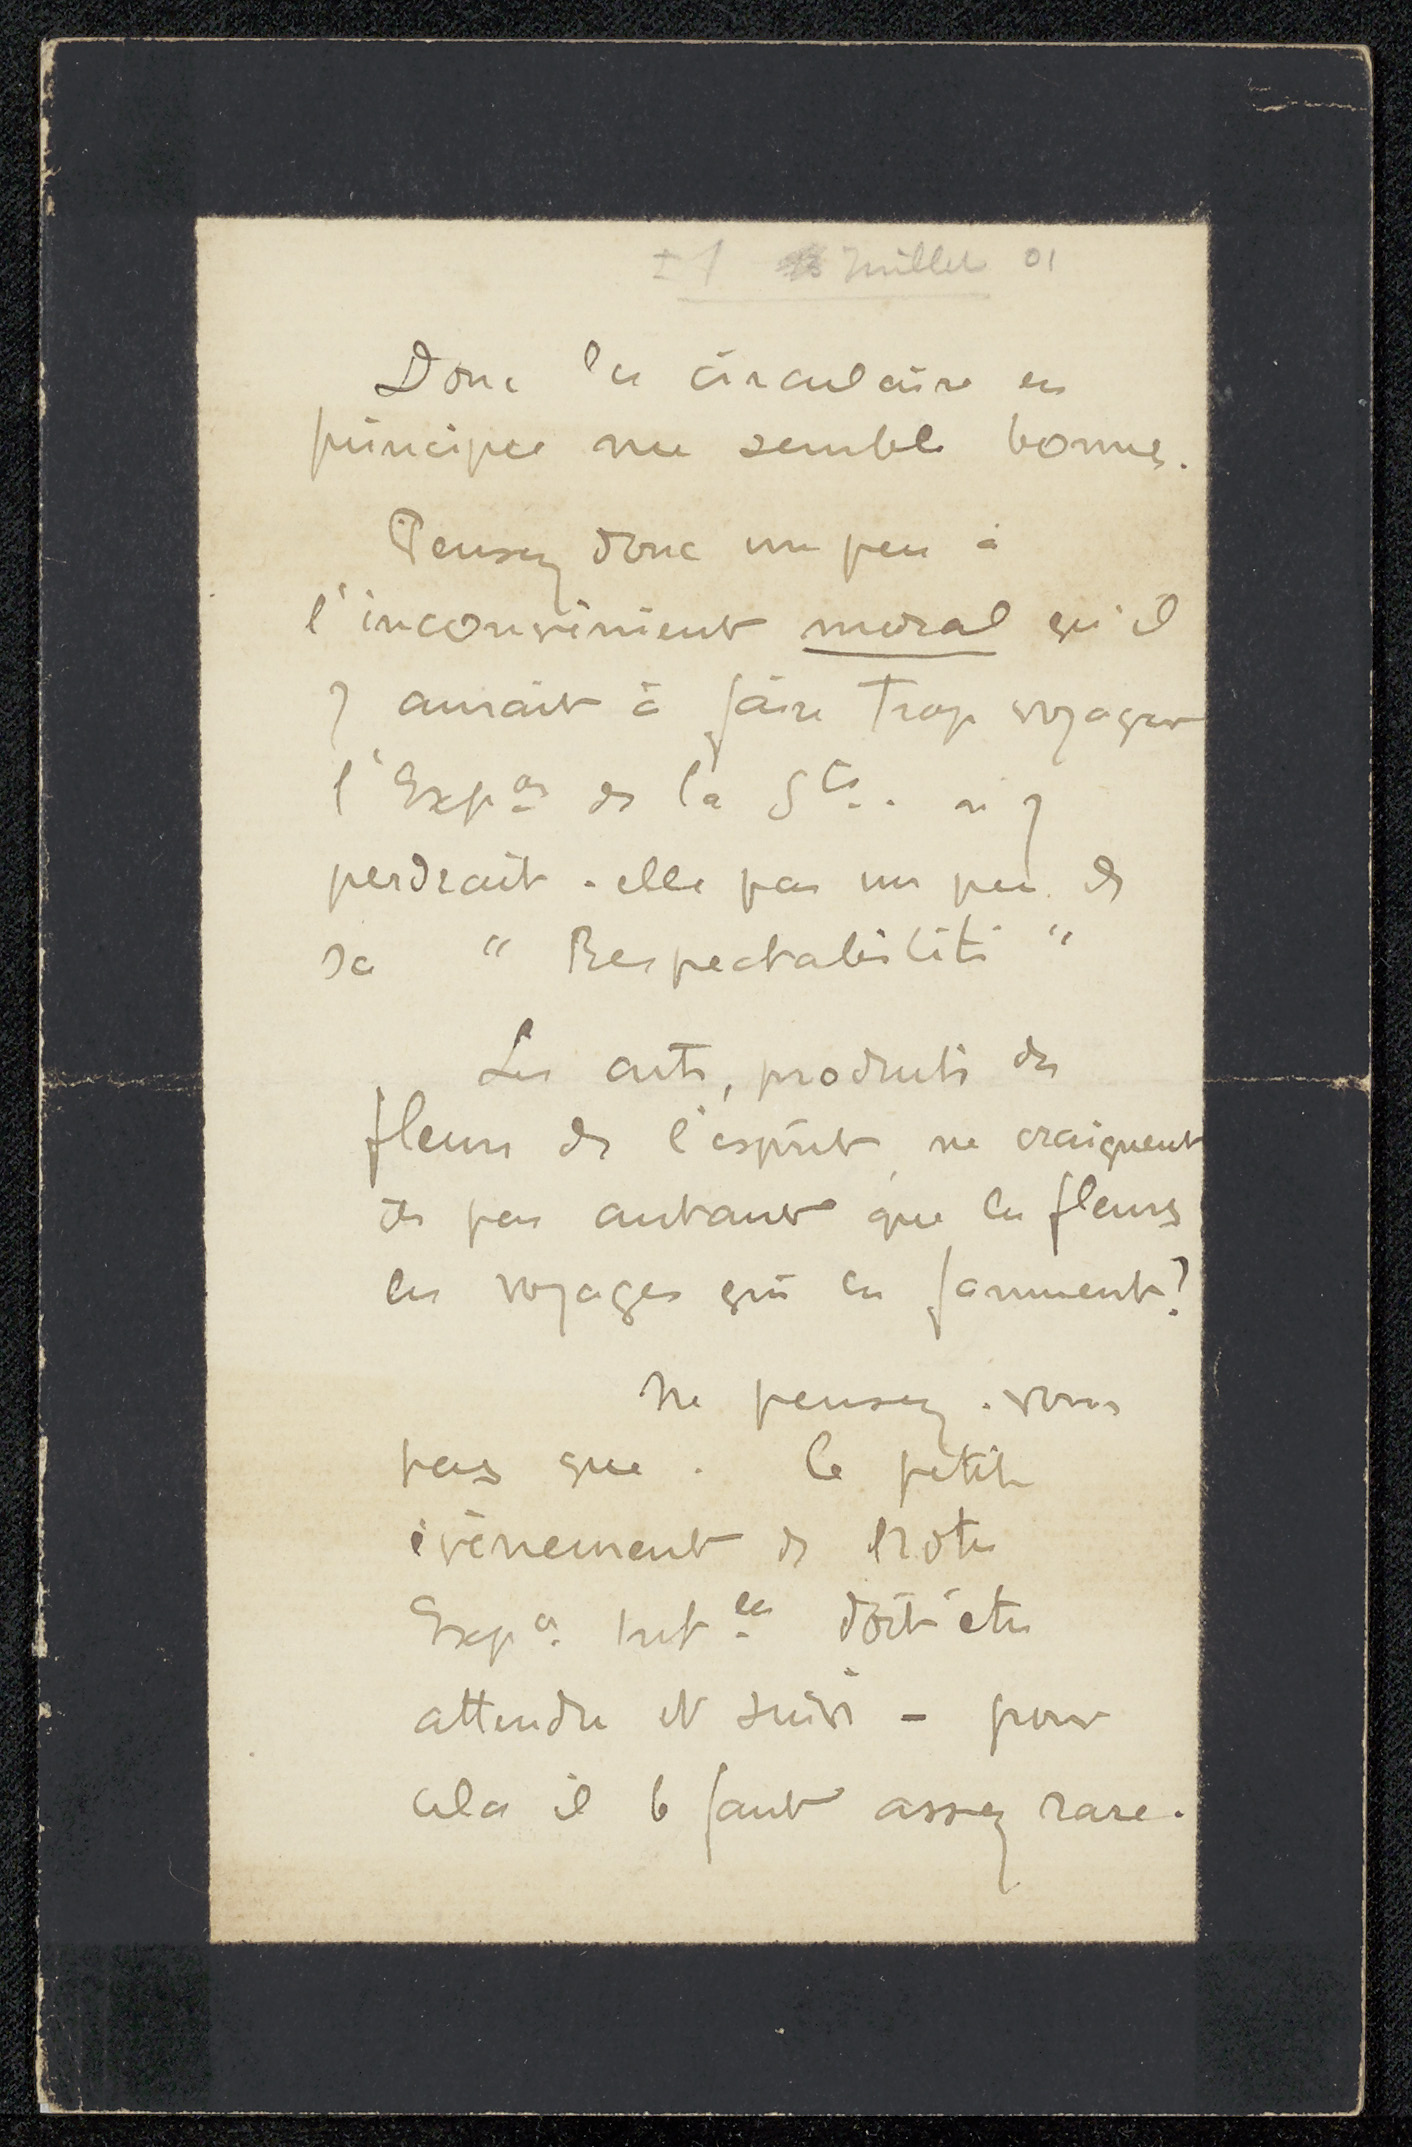 ± 1 Juillet 01
Donc la circulaire en
principe me semble bonne.
Pensez donc un peu à
l'inconvénient moral qu'il
y aurait à faire trop voyager
l'Expon de la Sté. n'y
perdrait-elle pas un peu de
sa " Respectabilité "
Les arts, produits des
fleurs de l'esprit, ne craignent
ils pas autant que les fleurs
les voyages qui les fannent?
Ne pensez-vous
pas que. le petit
évènement de
Expon doit être
attendu et suivi - pour
cela il faut assez rare.